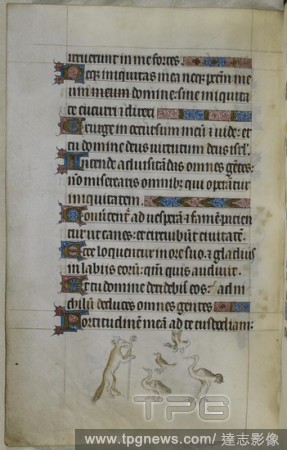 irruerunt in me fortes
Neqz iniquitas mea neqz peccm me
um meum domine: sine iniquita
te cucurri et direxi
Exurge in occursum meū et vide: et
tu domine deus virtutum deus isrl
Intende ad visitādas omnes gētes:
nō miserearis omnibz qui operātur
iniquitatem
Convertent ad vesperā et famē pacien
tur ut canes: et circuibūt civitatē
Ecce loquentur in ore suo et gladius
in labiis eorū: qm̄ quis audivit
Et tu domine deridebis eos: ad ni
chilū deduces omnes gentes
Fortitudinē meā ad te custodiam:
TPG
www.tpgnews.com / 達志影像